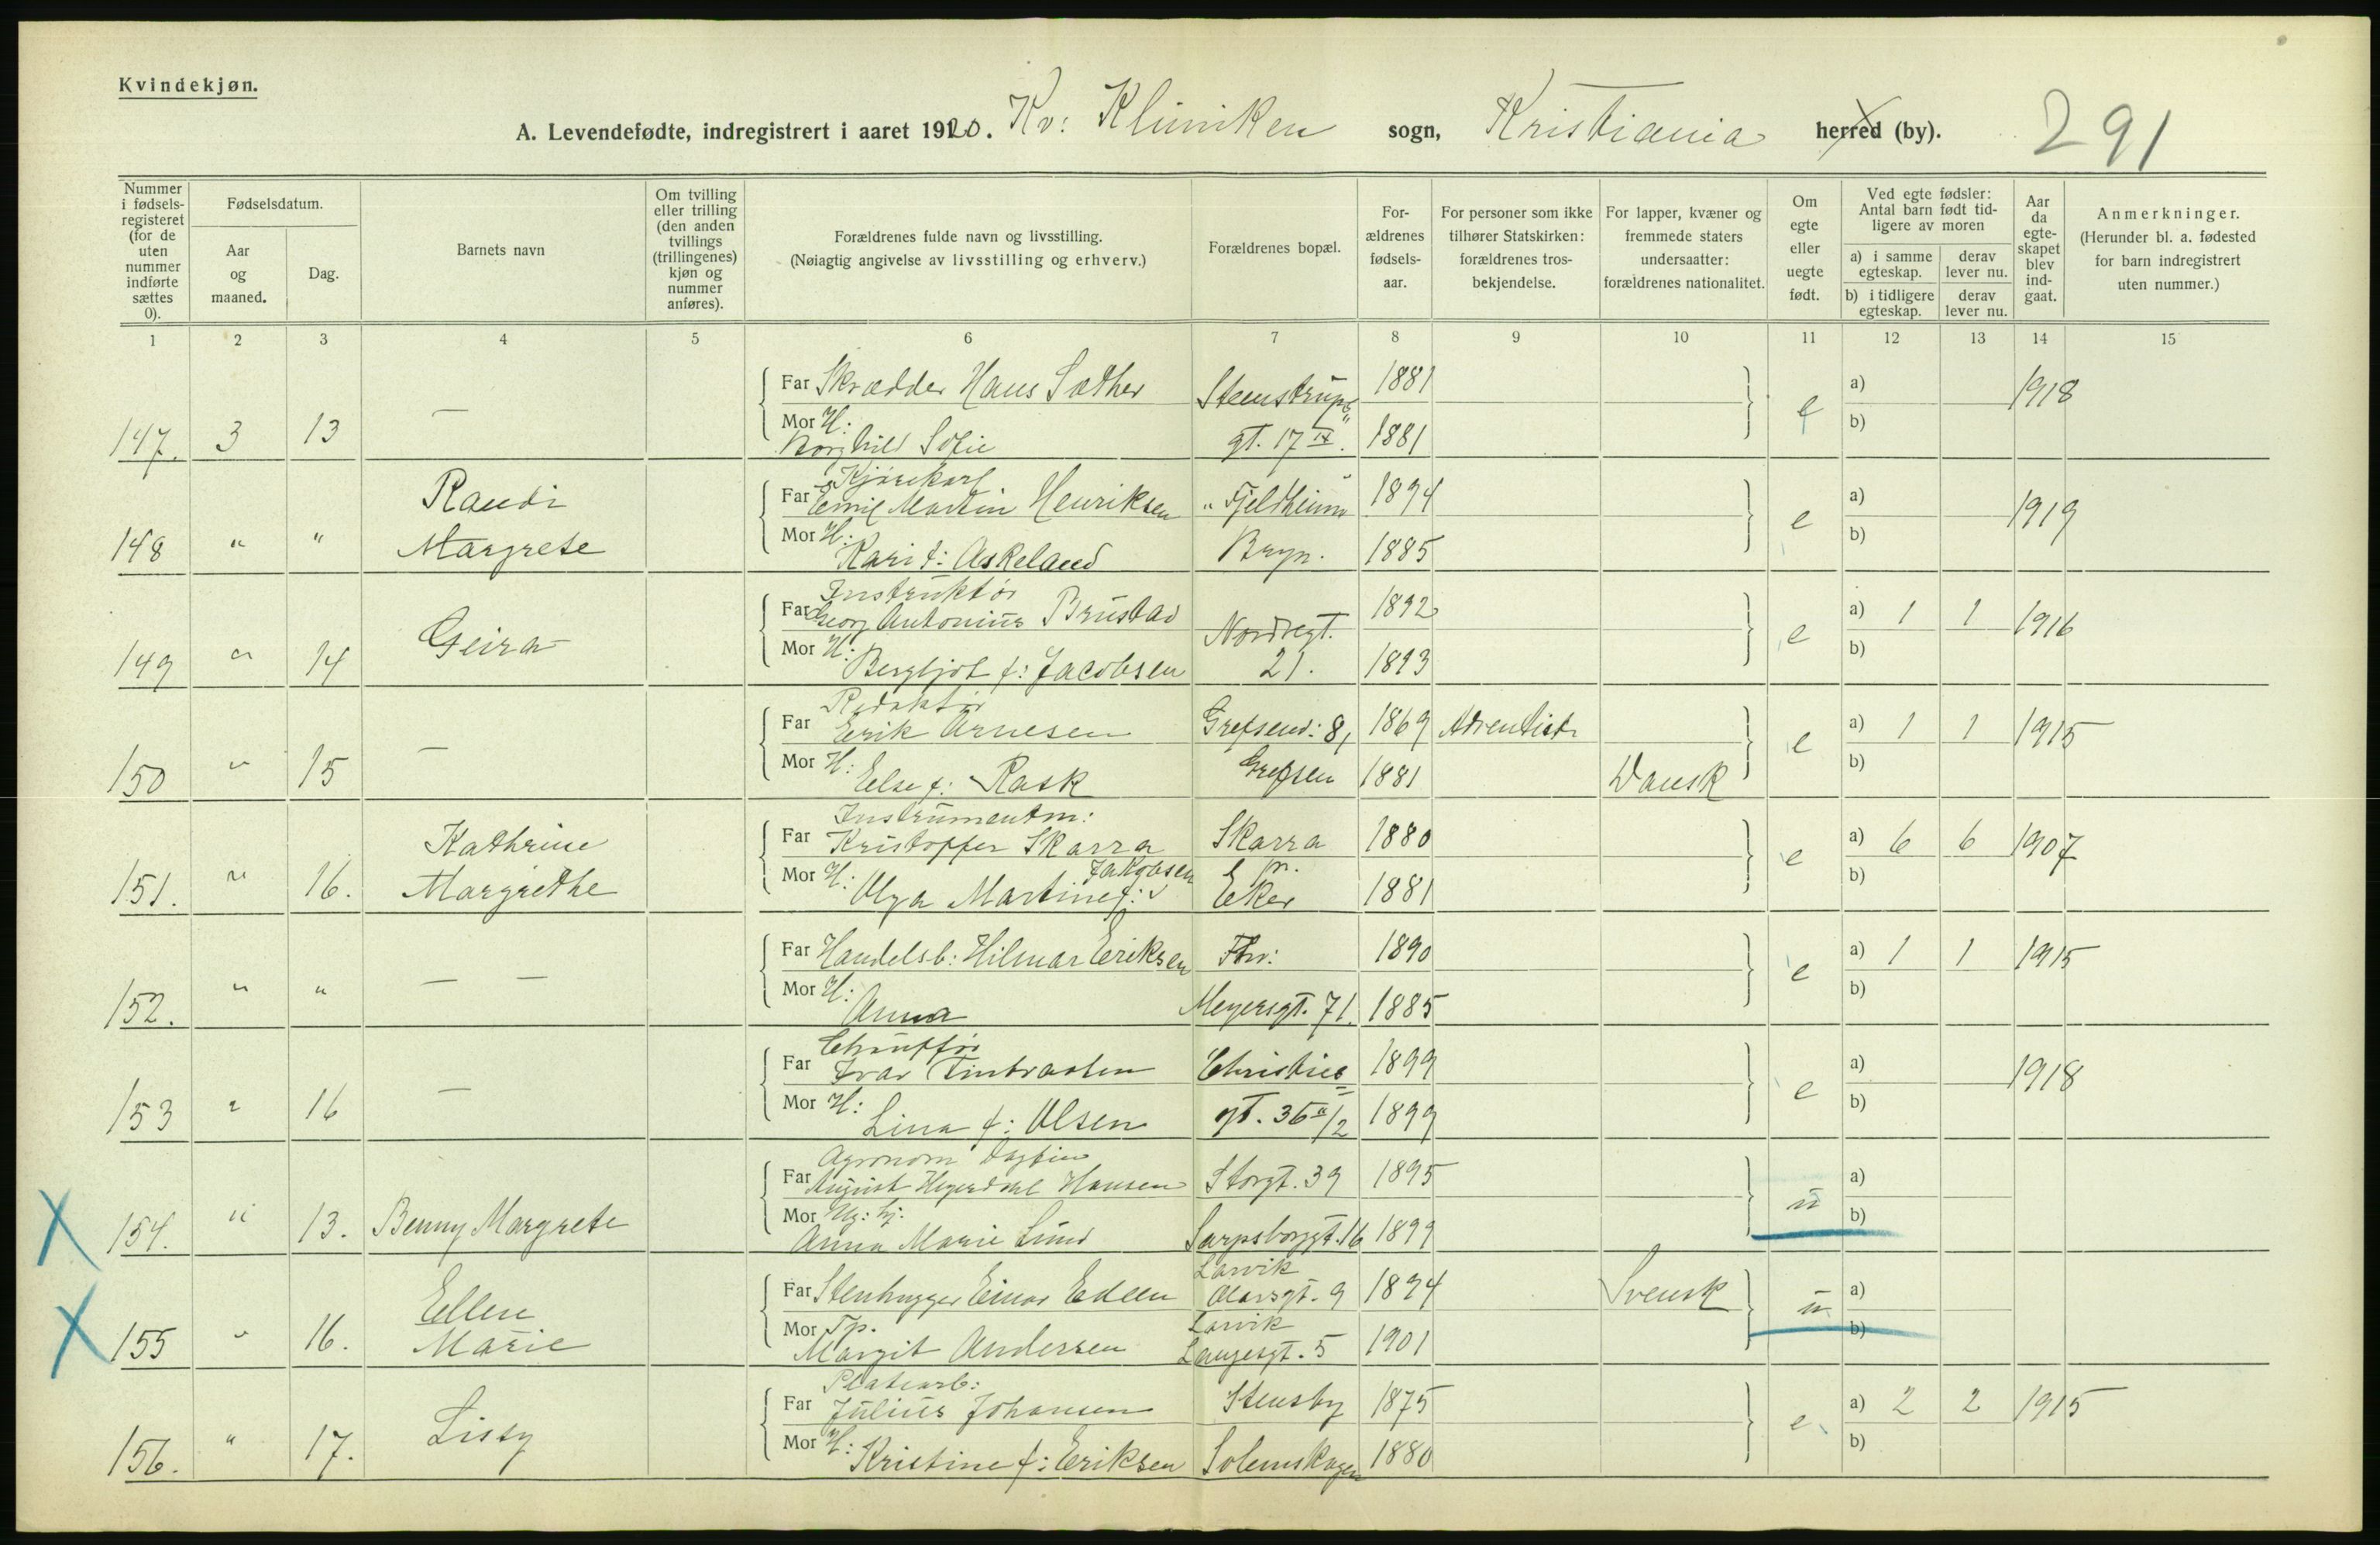 Kvindekjøn.
A. Levendefødte, indregistrert i aaret 1920. Kv: Kliniken sogn, Kristiania herred (by). 291
Nummer i fødsels-registeret (for de uten nummer indførte sættes 0).
Fødselsdatum.
Aar og maaned.
Dag.
Barnets navn
Om tvilling eller trilling (den anden tvillings (trillingenes) kjøn og nummer anføres).
Forældrenes fulde navn og livsstilling.
(Nøiagtig angivelse av livsstilling og erhverv.)
Forældrenes bopæl.
For-ældrenes fødsels-aar.
For personer som ikke tilhører Statskirken: forældrenes tros-bekjendelse.
For lapper, kvæner og fremmede staters undersaatter: forældrenes nationalitet.
Om egte eller uegte født.
Ved egte fødsler: Antal barn født tid-ligere av moren
a) i samme egteskap.
derav lever nu.
b) i tidligere egteskap.
derav lever nu.
Aar da egte-skapet blev ind-gaat.
Anmerkninger.
(Herunder bl. a. fødested for barn indregistrert uten nummer.)
1 2 3 4 5 6 7 8 9 10 11 12 13 14 15
Far Skrædder Hans Sæther Steenstrups 1881 e a) 1918
147. 3 13 — Mor H: Borghild Sofie gt. 17 IV. 1881 b)
Kjørekarl
Randi Far Emil Martin Henriksen "Fjeldheim" 1894 e a) 1919
148 " " Margrete Mor H: Kari f: Askeland Bryn. 1885 b)
Instruktør
Far Georg Antonius Brustad Nordregt. 1892 e a) 1 1 1916
149 " 14 Geira Mor H: Bergljot f: Jacobsen 21. 1893 b)
Redaktør
Far Erik Arnesen Grefsenv: 8, 1869 Adventist e a) 1 1 1915
150 " 15 — Mor H: Else f: Rask Grefsen 1881 Dansk b)
Instrumentm:
Kathrine Far Kristoffer Skarra Skarra 1880 e a) 6 6 1907
151. " 16. Margrethe Mor H: Olga Martine f: Jakobsen pr. Eker 1881 b)
Far Handelsb: Hilmar Eriksen Thv: 1890 e a) 1 1 1915
152. " " — — Mor H: Anna Meyersgt. 71. 1885 b)
Chauffør
Far Ivar Christies 1899 e a) 1918
153 " 16 — Mor H: Lina f: Olsen gt. 36 II/2 1899 b)
Agronom Dagfin
Far August Hegerdahl Hansen Storgt. 39 1895 u a)
154. " 13. Benny Margrete Mor Anna Marie Lund Sarpsborggt. 16 1899 b)
Larvik
Ellen Far Stenhugger Einar Edeen gt. 9 1894 Svensk u a)
155 " 16. Marie Mor Tp. Margit Andersen Larvik Langesgt. 5 1901 b)
Platearb:
Far Julius Johansen Stensby 1875 e a) 2 2 1915
156. " 17. Lissy Mor H: Kristine f: Eriksen Solemskogen 1880 b)